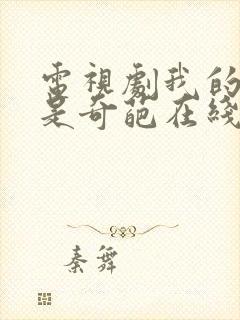 電視劇我的
是奇葩在綫
秦舞